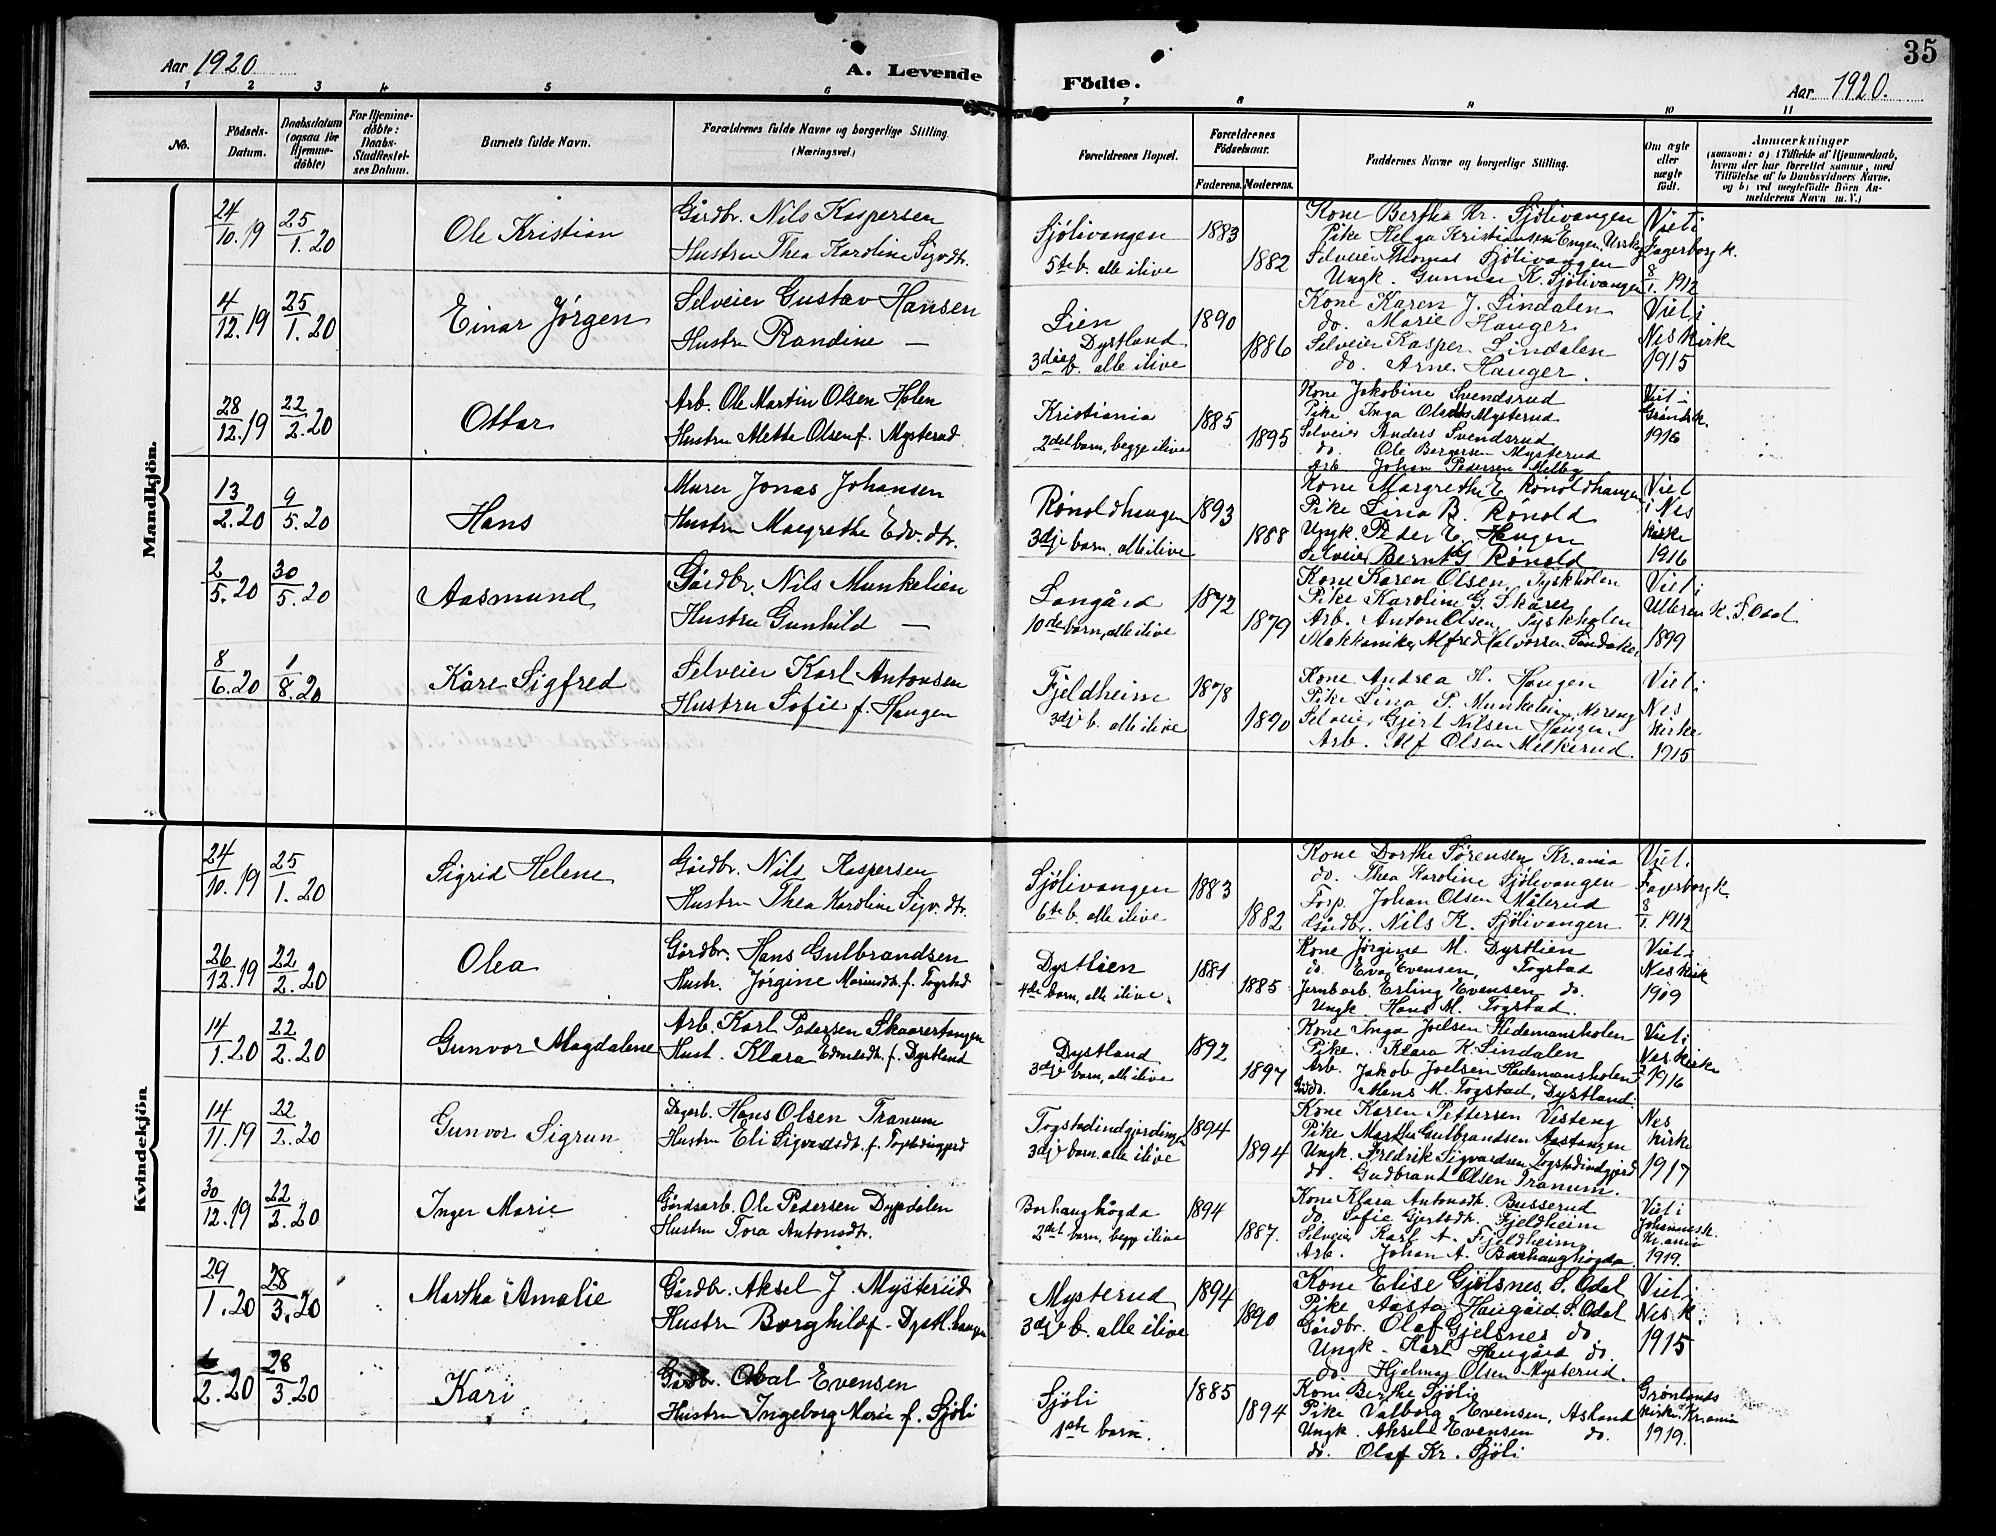 35
Aar 1920
A. Levende
Fødte.
Aar 1920.
1 2 3 4 5 6 7 8 9 10 11
No.
Fødsels-
Datum.
Daabsdatum
(ogsaa for
Hjemme-
døbte)
For Hjemme-
døbte:
Daabs-
Stadfæstel-
ses Datum.
Barnets fulde Navn.
Forældrenes fulde Navne og borgerlige Stilling.
(Næringsvei.)
Forældrenes Bopæl.
Forældrenes
Fødselsaar.
Faderens. Moderens.
Faddernes Navne og borgerlige Stilling.
Om ægte
eller
uægte
født.
Anmærkninger
(saasom: a) i Tilfælde af Hjemmedaab,
hvem der har forrettet samme, med
Tilføielse af to Daabsvidners Navne,
og b) ved uegtefødte Børn An-
melderens Navn m. V.)
Mandkjön.
24/10.19 25/1.20 Ole Kristian
Gårdbr. Nils Kaspersen
Hustru Thea Karoline Sigv.dtr.
Sjölivangen
5te b. alle ilive
1883
1882
Kone Bertha Kr. Sjölivangen
Pike Helga Kristiansen Engen, Urskog
Selveier Thomas Sjölivangen
Ungk. Gunnar K. Sjölivangen
Viet i
Fagerborg k.
8/1. 1912
4/12.19 25/1.20 Einar Jörgen
Selveier Gustav Hansen
Hustru Randine —
Lien
Dystland
3die b. alle ilive
1890
1886
Kone Karen J. Lindalen
do. Marie Hauger
Selveier Kasper Lindalen
do. Arne Hauger.
Viet i
Nes kirke
1915
28/12.19 22/2.20 Ottar
Arb. Ole Martin Olsen Holen
Hustru Mette Olsen f. Mysterud
Kristiania
2det barn, begge ilive
1885
1895
Kone Jakobine Svendsrud
Pike Inga Olsdtr Mysterud
Selveier Anders Svendsrud
do. Ole Bergersen Mysterud
Arb. Johan Pedersen Melby
Viet i
Grønlandsk.
1916
13/2.20 9/5.20 Hans
Murer Jonas Johansen
Hustru Margrethe Edv.dtr.
Rönoldhaugen
3dje barn. alle ilive
1893
1888
Kone Margrethe E. Rönoldhaugen
Pike Lina B. Rönold
Ungk. Peder E. Haugen
Selveier Bernt G. Rönold
Viet
i Nes
kirke
1916
2/5.20 30/5.20 Aasmund
Gårdbr. Nils Munkelien
Hustru Gunhild —
Langård
10de barn, alle ilive
1872
1879
Kone Karen Olsen, Tyskholen
Pike Karoline G. Skårer
Arb. Anton Olsen, Tyskholen
Mekkaniker Alfred Halvorsen Sandaker
Viet i
Ulleren k. S. Odal
1899
8/6.20 1/8.20 Kåre Sigfred
Selveier Karl Antonsen
Hustru Sofie f. Haugen
Fjeldheim
3dje b. alle ilive
1878
1890
Kone Andrea H. Haugen
Pike Lina P. Munkelien, Nereng
Selveier Gjert Nilsen Haugen
Arb. Alf Olsen Melkerud.
Viet i
Nes
kirke
1915
Kvindekjön
24/10.19 25/1.20 Sigrid Helene
Gårdbr. Nils Kaspersen
Hustru Thea Karoline Sigv.dtr.
Sjölivangen
6te b. alle ilive
1883
1882
Kone Dorthe Sørensen Kr.ania
do. Thea Karoline Sjölivangen
Forp. Johan Olsen Målerud
Gårdbr. Nils K. Sjölivangen
Viet i
Fagerborg k.
8/1. 1912
26/12.19 22/2.20 Olea
Gårdbr. Hans Gulbrandsen
Hustr. Jörgine Mariusdt. f. Togstad
Dystlien
4de barn, alle ilive.
1881
1885
Kone Jörgine M. Dystlien
do. Eva Evensen, Togstad
Jernbarb. Erling Evensen do.
Ungk. Hans M. Togstad.
Viet i
Nes kirk
1909
14/1.20 22/2.20 Gunvor Magdalene
Arb. Karl Pedersen Skaarertangen
Hust. Klara Edvardsdt. f. Dystland
Dystland
3dje barn, alle ilive
1892
1897
Kone Inga Joelsen Hedemansholen
Pike Klara K. Lindalen
Arb. Jakob Joelsen Hedemansholen
Gårdb. Mens M. Togstad, Dystland.
Viet i
Nes kirke
1916
14/11.19 22/2.20 Gunvor Sigrun
Dagarb. Hans Olsen Tranum
Hustru Eli Sigvardsdt. f. Togstadindgjord
Togstadindgjordingen
3dje barn. alle ilive
1894
1894
Kone Karen Pettersen Vesteng
Pike Martha Gulbrandsen Aastangen
Ungk. Fredrik Sigvardsen Togstadindgjord
do. Gudbrand Olsen Tranum.
Nes
kirke
1917
30/12.19 22/2.20 Inger Marie
Gårdsarb. Ole Pedersen Dypdalen
Hustru Tora Antonsdtr.
Borhaughögda
2det barn, begge ilive
1894
1887.
Kone Klara Antonsdt. Busserud
do. Sofie Gjertsdt. Fjeldheim
Selveier Karl A. Fjeldheim
Arb. Johan A. Borhaughögda
Viet i
Johannesk.
Kr.ania
1919.
29/1.20 28/3.20 Martha Amalie
Gårdbr. Aksel J. Mysterud
Hustru Borghild f. Dystl.haugen
Mysterud
3dje b. alle ilive
1894
1890
Kone Elise Gjölsnes, S. Odal
Pike Aasta Haugård S. Odal
Gårdbr. Olaf Gjelsnes do.
Ungk. Karl Haugård do.
do. Hjelmar Olsen Mysterud.
Viet i
Nes k.
1915
2.20 28/3.20 Kari
Gårdb. Olval Evensen
Hustru Ingeborg Marie f. Sjöli
Sjöli
1ste barn.
1885
1894
Kone Berthe Sjöli
Pike Valborg Evensen, Asland
Ungk. Aksel Evensen do.
do. Olaf Kr. Sjöli
Grønlands
kirke Kr.ania
1919.